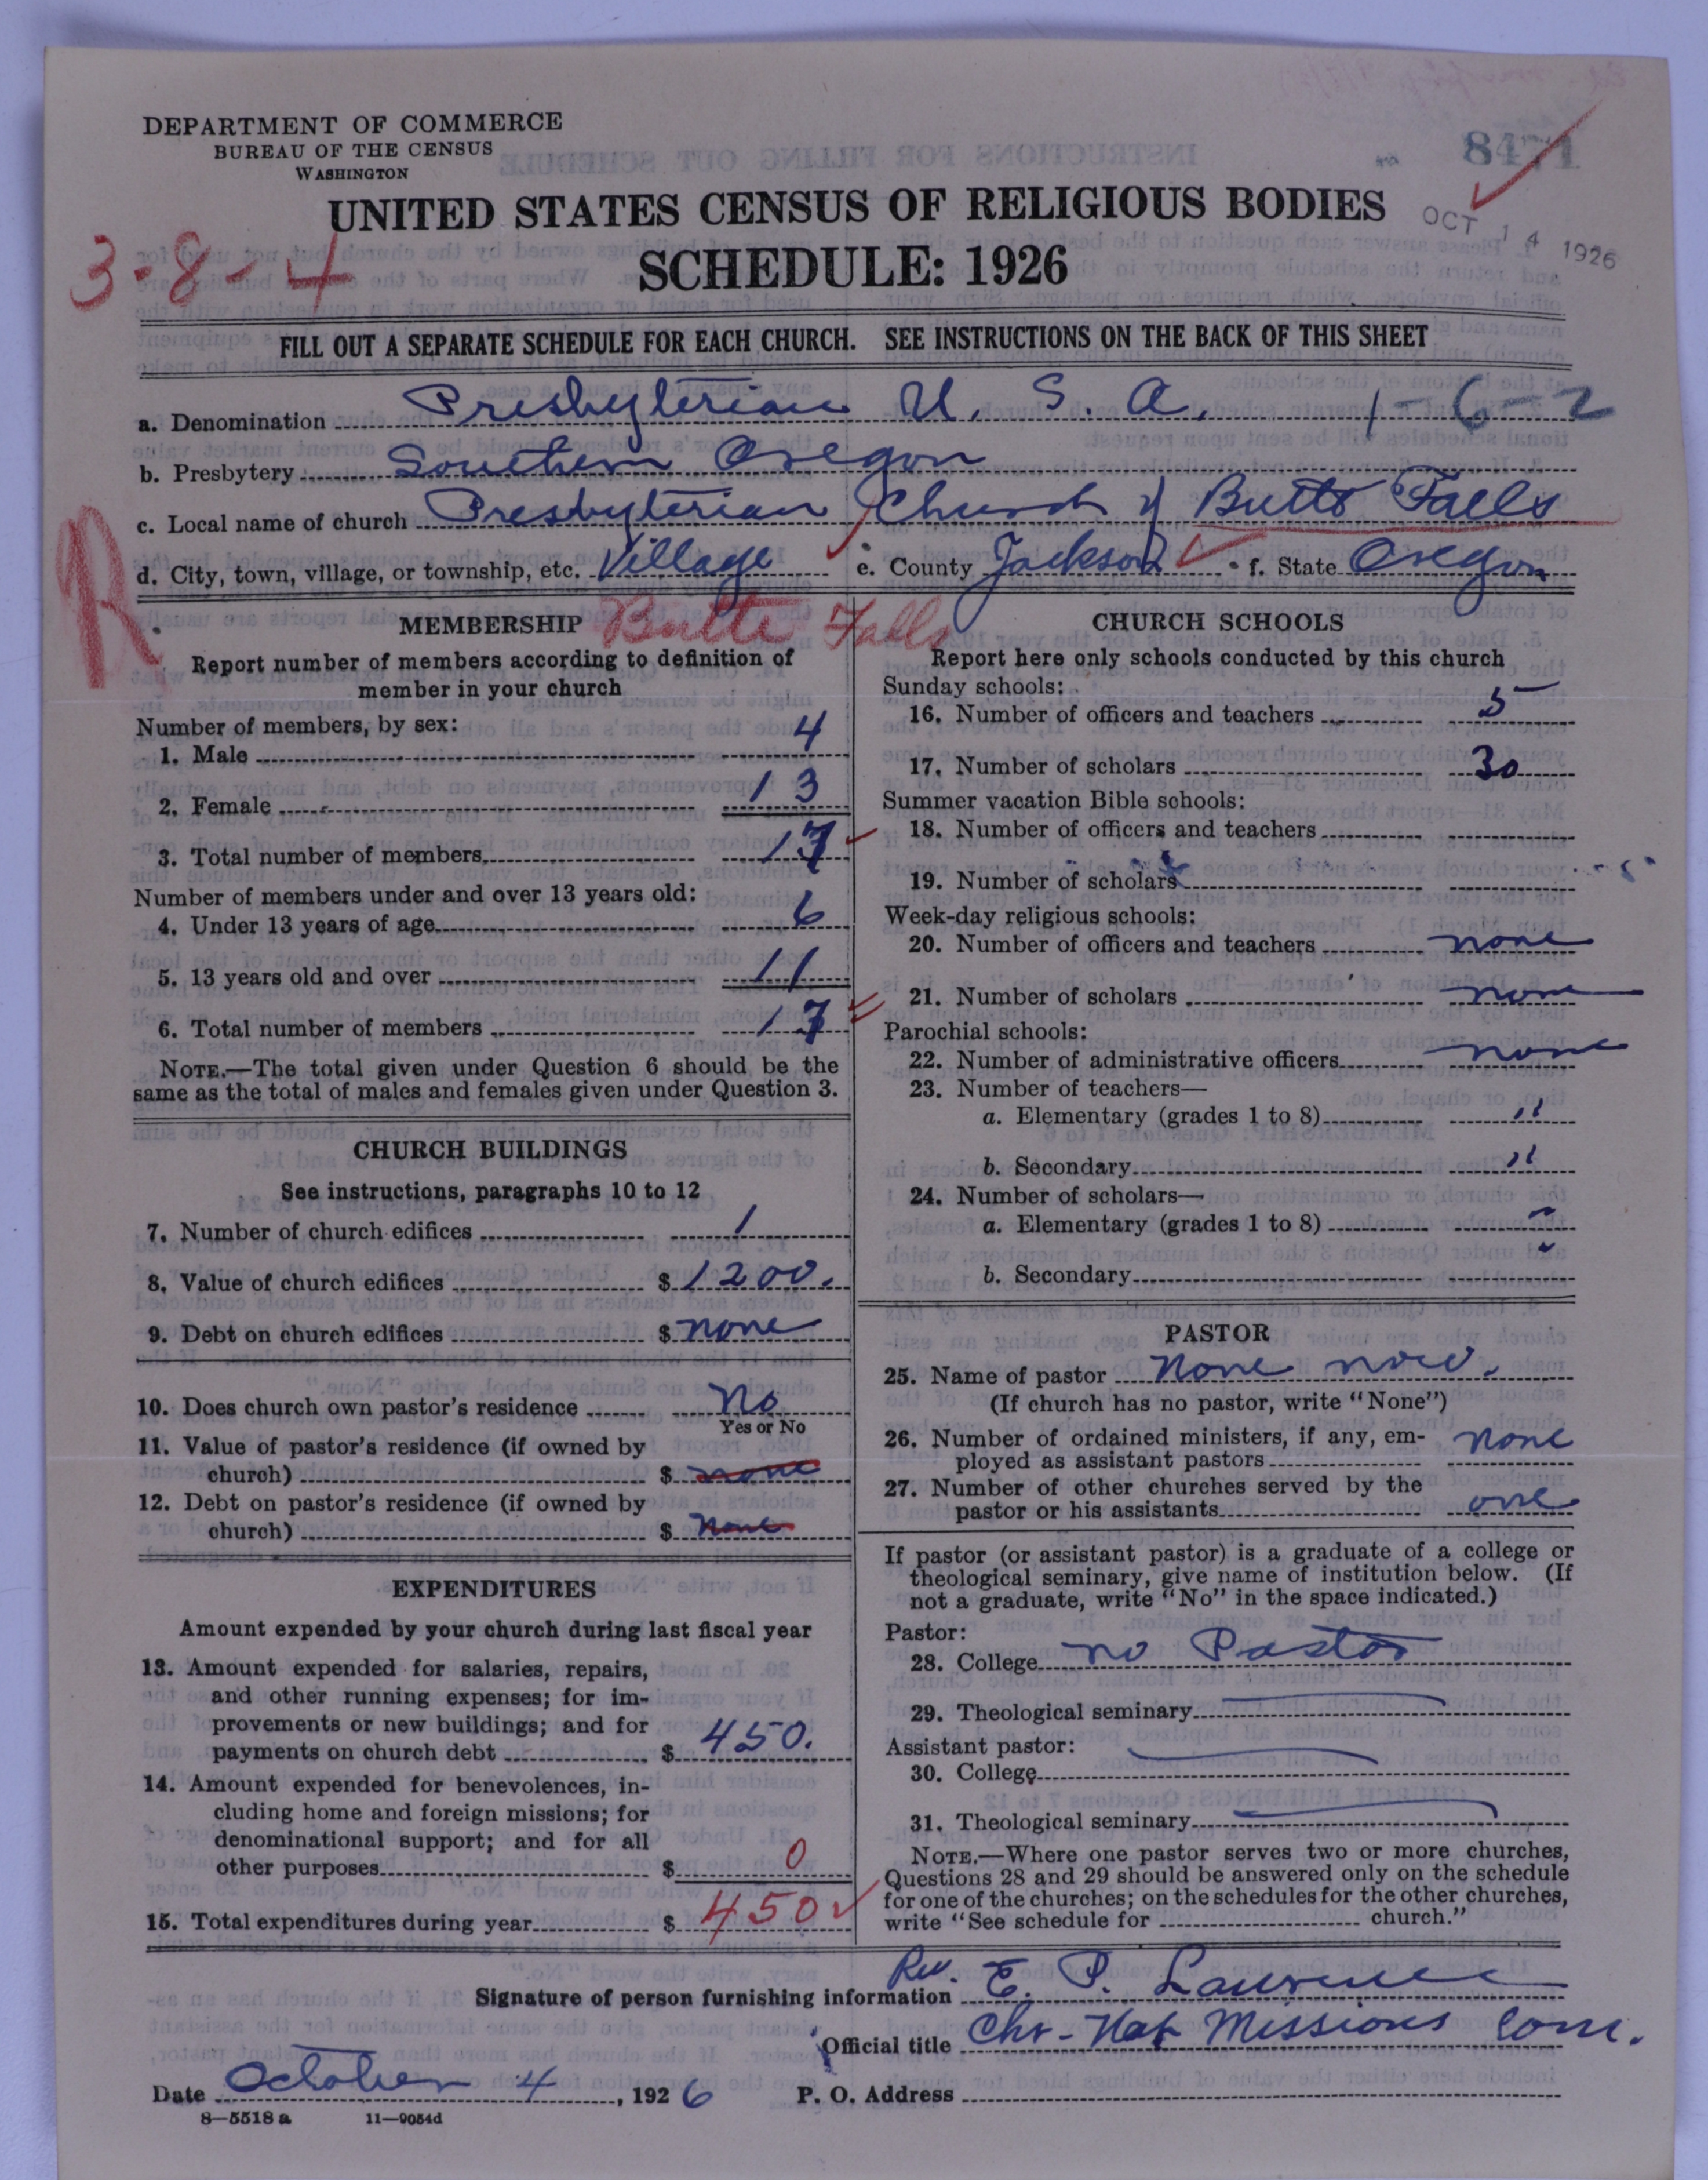 DEPARTMENT OF COMMERCE
BUREAU OF THE CENSUS
WASHINGTON
8471
UNITED STATES CENSUS OF RELIGIOUS BODIES
OCT 14 1926
3-8-4
SCHEDULE: 1926
FILL OUT A SEPARATE SCHEDULE FOR EACH CHURCH. SEE INSTRUCTIONS ON THE BACK OF THIS SHEET
a. Denomination Presbyterian U. S. A. 1-6-2
b. Presbytery Southern Oregon
c. Local name of church Presbyterian Church of Butte Falls
d. City, town, village, or township, etc. Village e. County Jackson f. State Oregon
R
MEMBERSHIP Butte Falls
Report number of members according to definition of
member in your church
Number of members, by sex:
1. Male 4
2. Female 13
3. Total number of members 17
Number of members under and over 13 years old:
4. Under 13 years of age 6
5. 13 years old and over 11
6. Total number of members 17
NOTE.—The total given under Question 6 should be the
same as the total of males and females given under Question 3.
CHURCH BUILDINGS
See instructions, paragraphs 10 to 12
7. Number of church edifices 1
8. Value of church edifices $ 1200.
9. Debt on church edifices $ none
10. Does church own pastor's residence No
Yes or No
11. Value of pastor's residence (if owned by
church) $ none
12. Debt on pastor's residence (if owned by
church) $ none
EXPENDITURES
Amount expended by your church during last fiscal year
13. Amount expended for salaries, repairs,
and other running expenses; for im-
provements or new buildings; and for
payments on church debt $ 450.
14. Amount expended for benevolences, in-
cluding home and foreign missions; for
denominational support; and for all
other purposes $ 0
15. Total expenditures during year $ 450
CHURCH SCHOOLS
Report here only schools conducted by this church
Sunday schools:
16. Number of officers and teachers 5
17. Number of scholars 30
Summer vacation Bible schools:
18. Number of officers and teachers
19. Number of scholars
Week-day religious schools:
20. Number of officers and teachers none
21. Number of scholars none
Parochial schools:
22. Number of administrative officers none
23. Number of teachers—
a. Elementary (grades 1 to 8) "
b. Secondary "
24. Number of scholars—
a. Elementary (grades 1 to 8) "
b. Secondary "
PASTOR
25. Name of pastor None now.
(If church has no pastor, write "None")
26. Number of ordained ministers, if any, em-
ployed as assistant pastors none
27. Number of other churches served by the
pastor or his assistants one
If pastor (or assistant pastor) is a graduate of a college or
theological seminary, give name of institution below. (If
not a graduate, write "No" in the space indicated.)
Pastor:
28. College no Pastor
29. Theological seminary
Assistant pastor:
30. College
31. Theological seminary
NOTE.—Where one pastor serves two or more churches,
Questions 28 and 29 should be answered only on the schedule
for one of the churches; on the schedules for the other churches,
write "See schedule for church."
Signature of person furnishing information Rev. E. P. Lawrence
Official title Chr-Nat Missions Com.
Date October 4, 1926 P. O. Address
8—5518 a 11—9054d